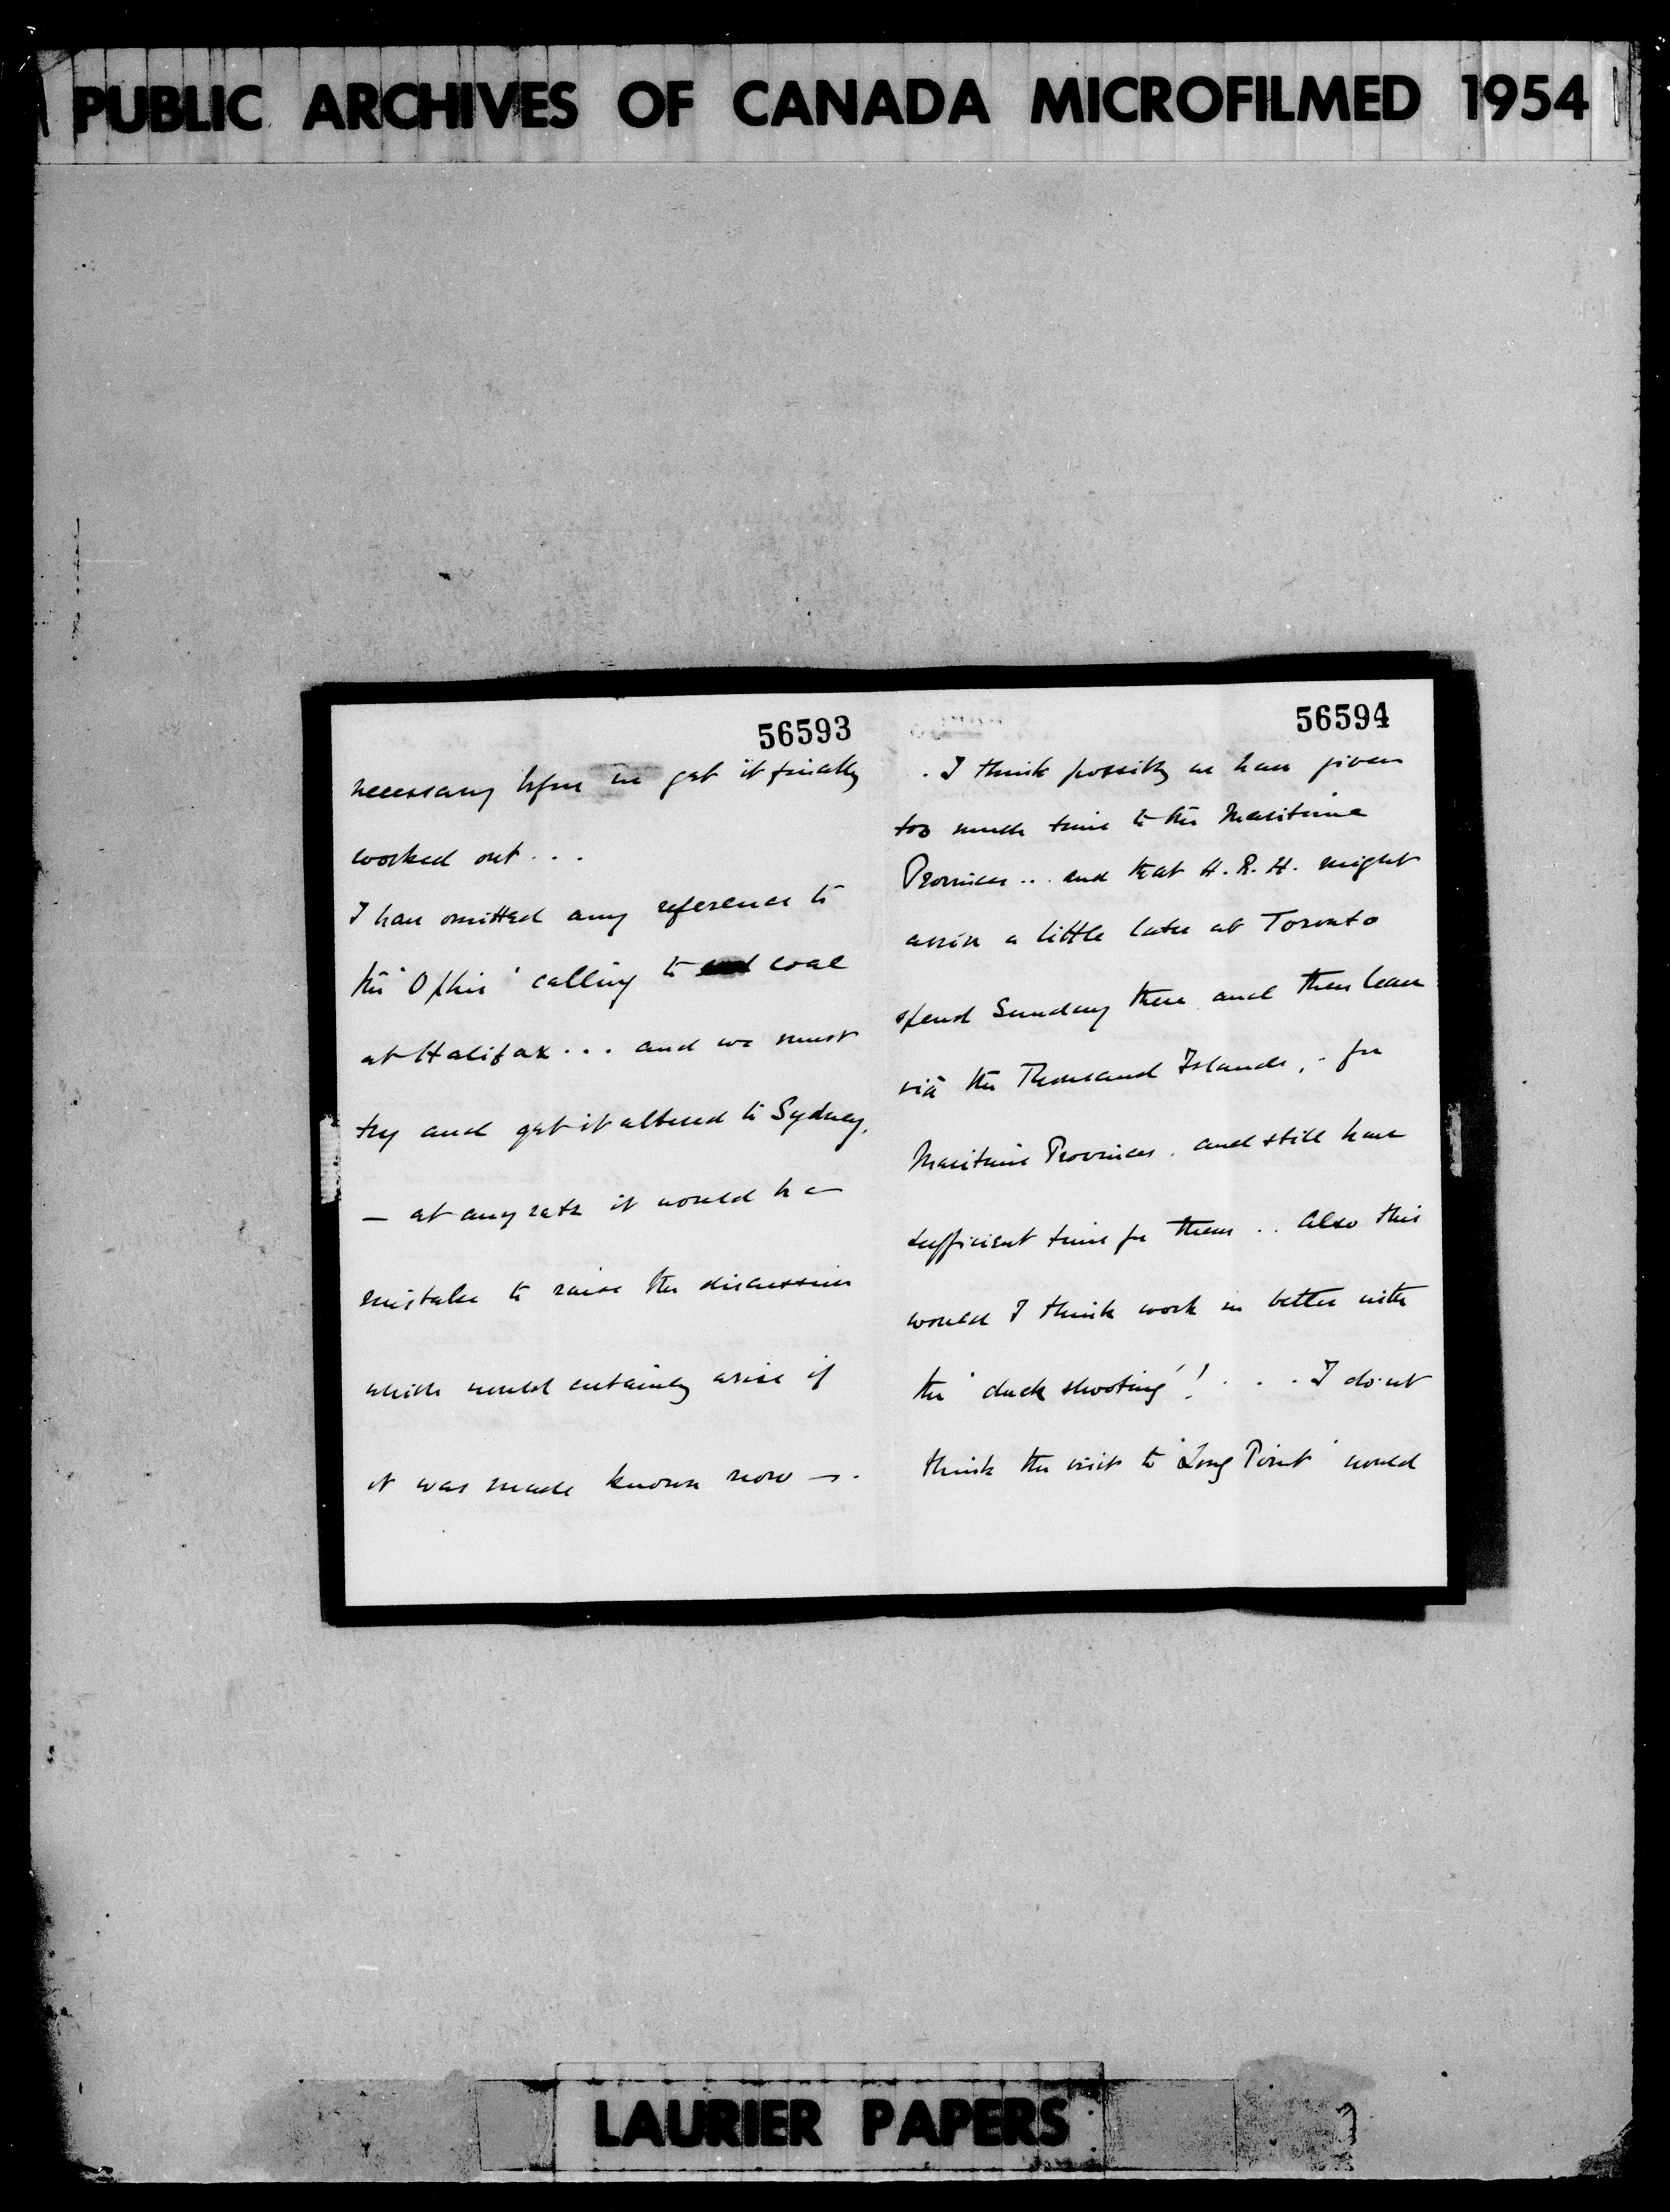 PUBLIC ARCHIVES OF CANADA MICROFILMED 1954
56593
necessary before we get it finally
worked out . . .
I have omitted any reference to
the 'Ophir' calling to coal
at Halifax . . . and we must
try and get it altered to Sydney.
— at any rate it would be a
mistake to raise the discussion
which would certainly arise if
it was made known now —.
56594
. I think possibly we have given
too much time to the Maritime
Provinces . . and that H.R.H. might
arrive a little later at Toronto
spend Sunday there and then leave
viâ the Thousand Islands, for
Maritime Provinces . and still have
sufficient time for them . . Also this
would I think work in better with
the 'duck shooting'! . . . I do'nt
think the visit to 'Long Point' would
LAURIER PAPERS